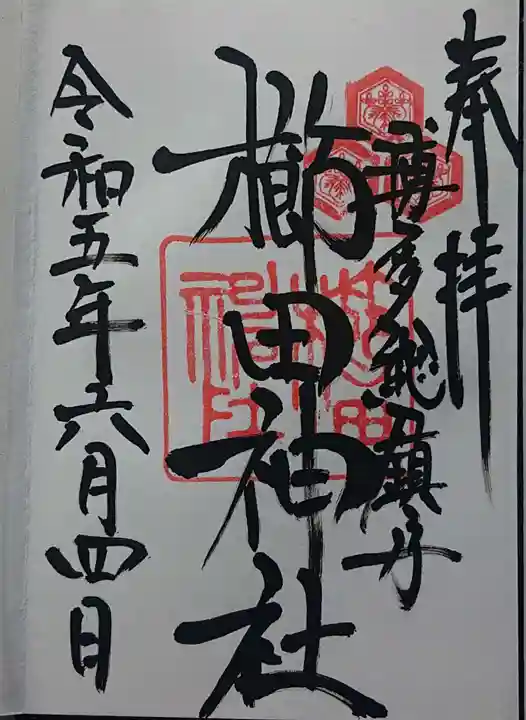 奉拝
博多総鎮守
櫛田神社
令和五年六月四日